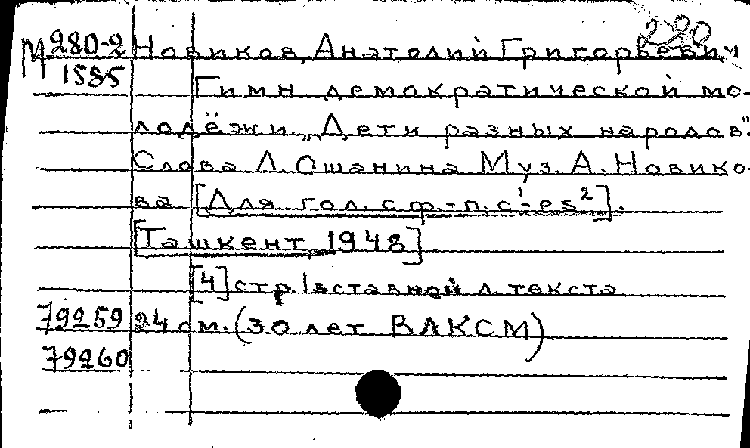 290
М 280-2 Новиков, Анатолий Григорьевич
1585 Гимн демократической мо-
лодёжи „Дети разных народов".
Слова Л. Ошанина Муз. А. Новико-
ва [Для гол. с ф.-п. c¹-es²].
[Ташкент 1948]
[4] стр. 1 вставной л. текста
79259 24 см. (30 лет ВЛКСМ)
79260